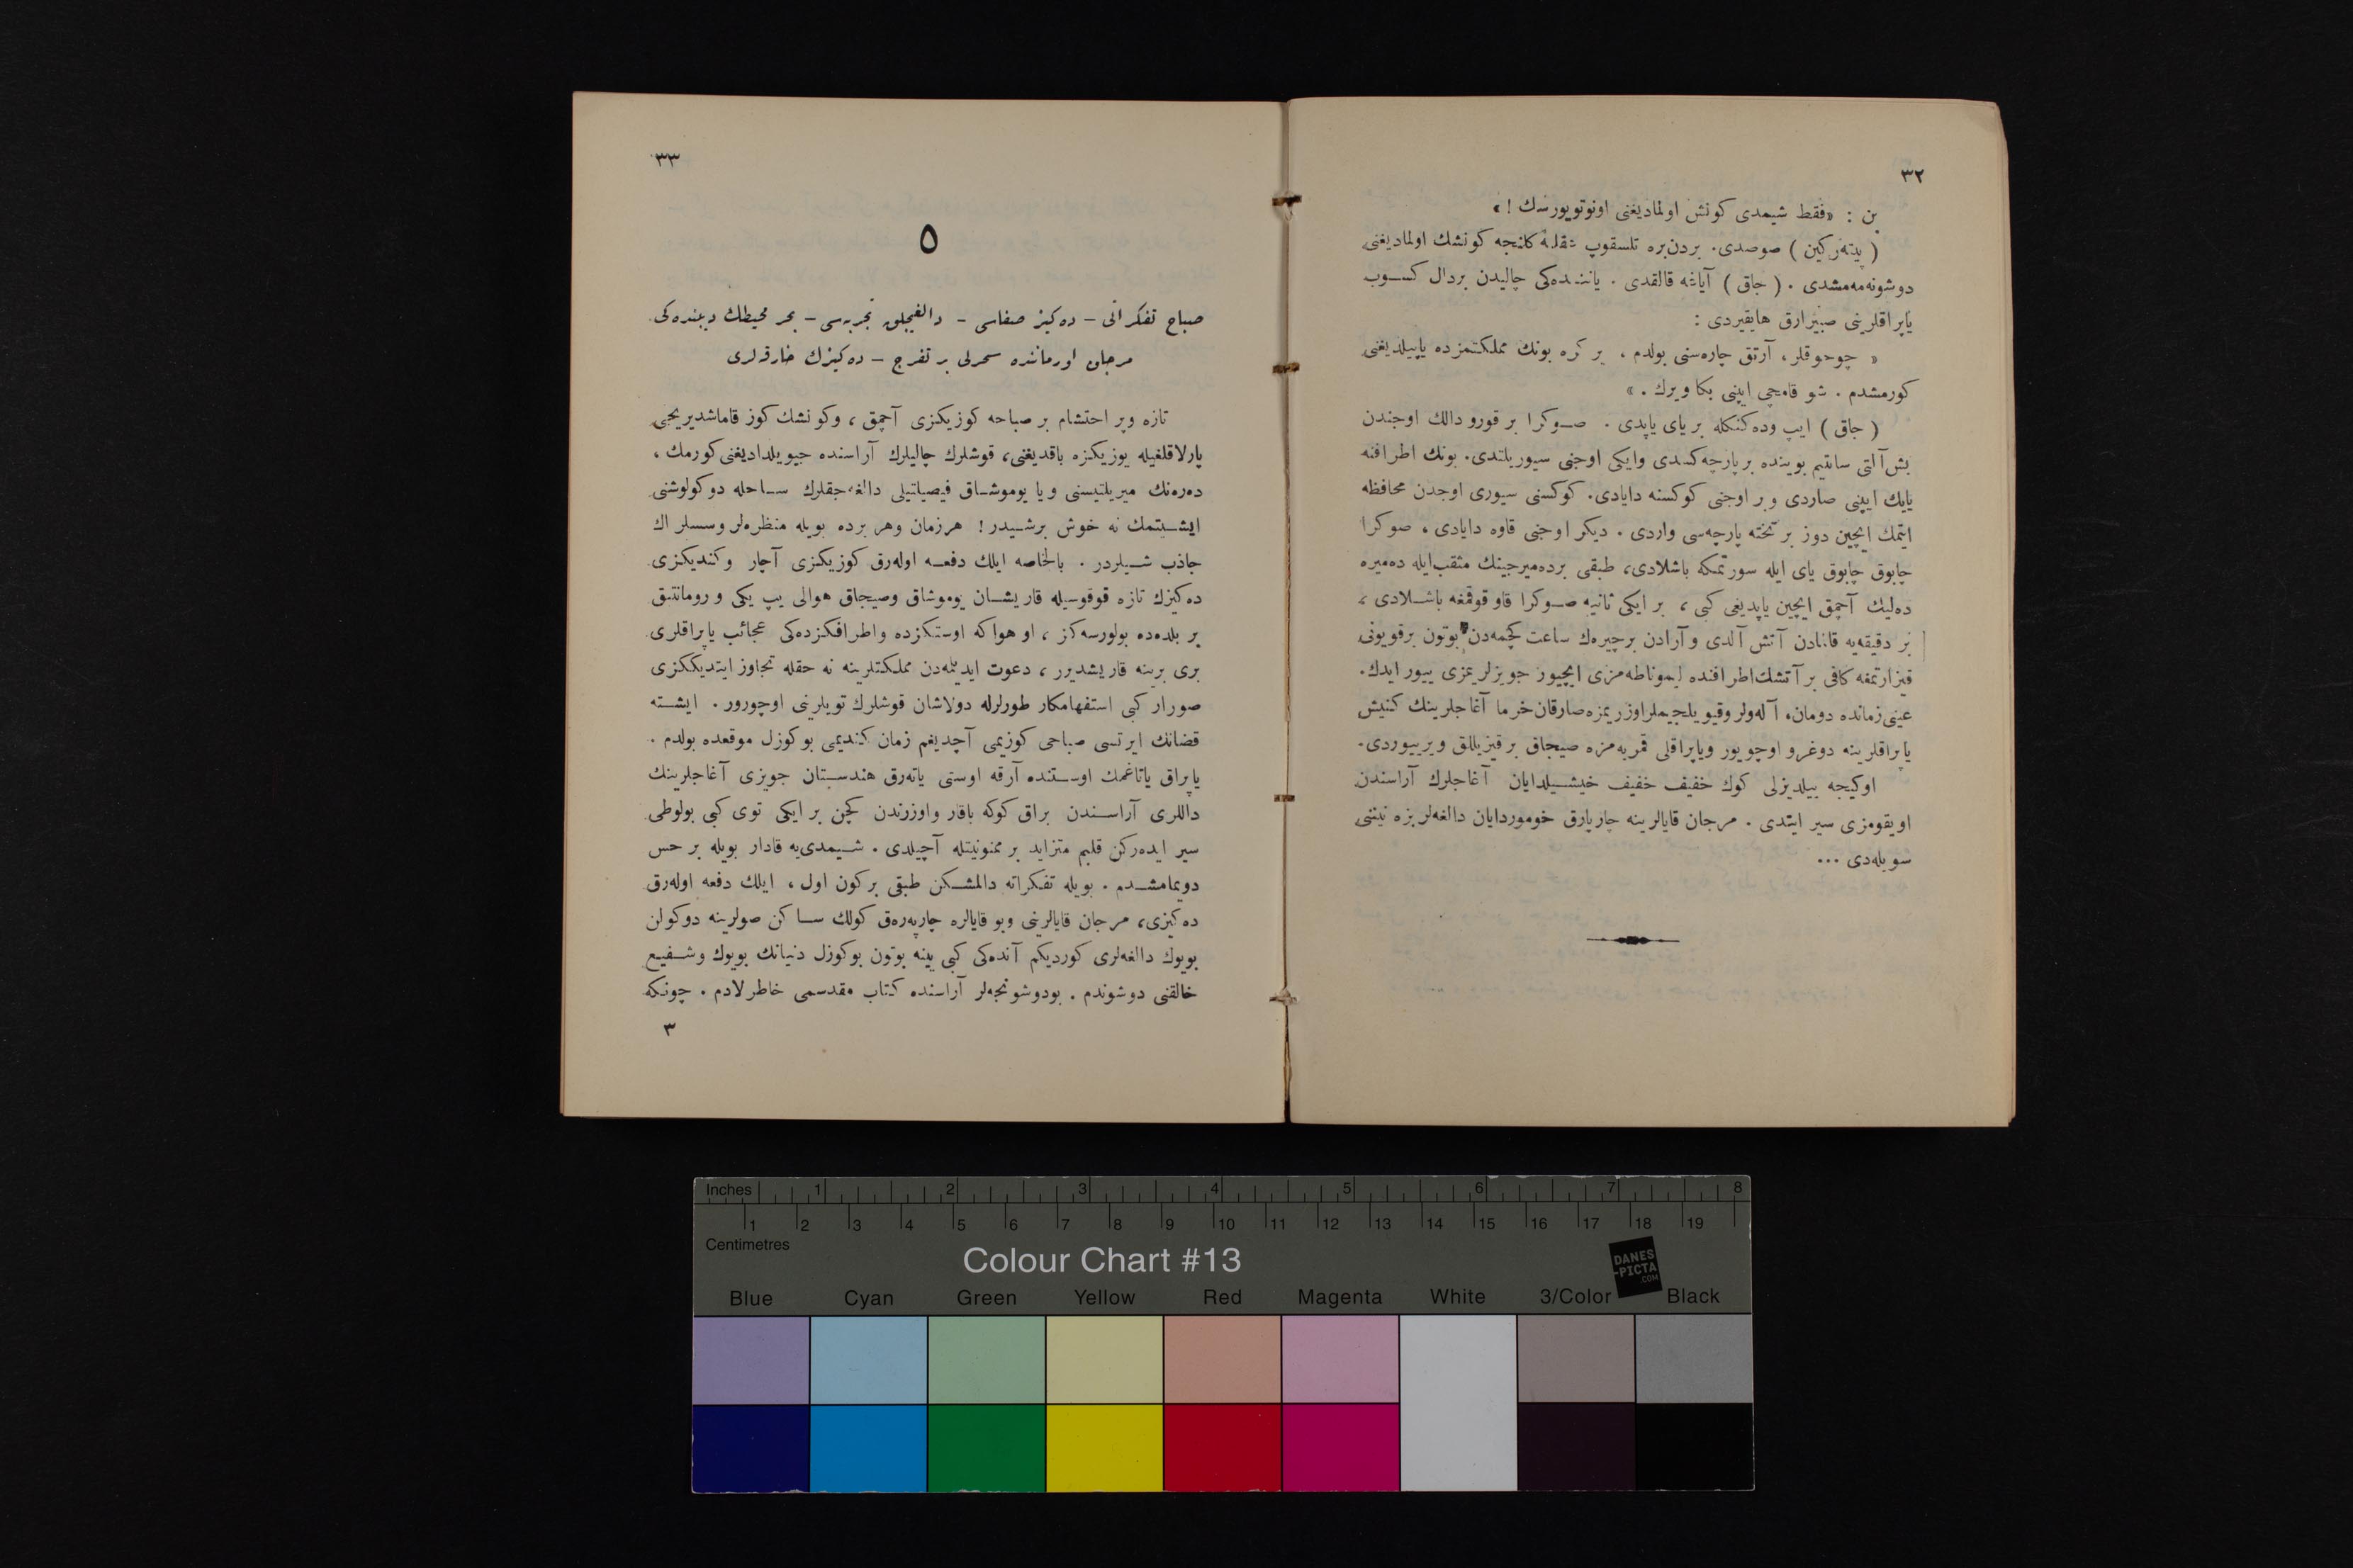 ٣٢
بن : «فقط شیمدی کونش اولمادیغنی اونوتویورسك !»
( پیته‌رکین ) صوصدی. بردن‌بره تلسقوپ نقلهٔ کلنجه کونشك اولمادیغنی
دوشونه‌مه‌مشدی . ( جاق ) آیاغه قالقدی . یاننده‌کی چالیدن بردال کسوب
یاپراقلرینی صییرارق هایقیردی :
« چوجوقلر ، آرتق چاره‌سنی بولدم ، بر کره بونك مملکتمزده یاپیلدیغنی
کورمشدم . شو قامچی ایپنی بکا ویرك . »
( جاق ) ایپ وده‌کنکله بر یای یاپدی . صوکرا بر قورو دالك اوجندن
بش‌آلتی سانتیم بوینده بر پارچه‌کسدی وایکی اوجنی سیوریلتدی. بونك اطرافنه
یایك ایپنی صاردی وبر اوجنی کوکسنه دایادی. کوکسنی سیوری اوجدن محافظه
ایتمك ایچین دوز بر تخته پارچه‌سی واردی . دیکر اوجنی قاوه دایادی ، صوکرا
چابوق چابوق یای ایله سورتمکه باشلادی، طبقی برده‌میرجینك مثقب‌ایله ده‌میره
ده‌لیك آچمق ایچین یاپدیغی کبی ، بر ایکی ثانیه صوکرا قاو قوقمغه باشلادی ،
بر دقیقه‌یه قالمادن آتش آلدی و آرادن برچیره‌ك ساعت کچمه‌دن بوتون برقویونی
قیزارتمغه کافی بر آتشك‌اطرافنده لیموناطه‌مزی ایچیور جویزلریمزی ییور ایدك.
عینی‌زمانده دومان، آله‌ولر وقیویلجیملراوزریمزه‌صارقان‌خرما آغاجلرینك کنیش
یاپراقلرینه دوغرو اوچویور ویاپراقلی قمریه‌مزه صیجاق بر قیزیللق ویرییوردی.
اوکیجه ییلدیزلی کوك خفیف خفیف خیشیلدایان آغاجلرك آراسندن
اویقومزی سیر ایتدی . مرجان قایالرینه چارپارق خوموردایان دالغه‌لر بزه نینی
سویله‌دی ...
٣٣
٥
صباح تفکراتی – ده‌کیز صفاسی – دالغیجلق تجربه‌سی – بحر محیطك دیبنده‌کی
مرجان اورماننده سحرلی بر تفرج – ده‌کیزك خارقه‌لری
تازه وپر احتشام بر صباحه کوزیکزی آچمق ، وکونشك کوز قاماشدیریجی
پارلاقلغیله یوزیکزه باقدیغنی، قوشلرك چالیلرك آراسنده جیویلدادیغنی‌کورمك ،
دره‌نك میریلتیسنی ویا یوموشاق فیصیلتیلی دالغه‌جقلرك ساحله دوکولوشنی
ایشیتمك نه خوش برشیدر! هرزمان وهر یرده بویله منظره‌لر وسسلر اك
جاذب شیلردر . بالخاصه ایلك دفعه اوله‌رق کوزیکزی آچار وکندیکزی
ده‌کیزك تازه قوقوسیله قاریشان یوموشاق وصیجاق هوالی یپ یکی و رومانتیق
بر بلده‌ده بولورسه‌کز ، او هواکه اوستکزده واطرافکزده‌کی عجائب یاپراقلری
بری برینه قاریشدیرر ، دعوت ایدیلمه‌دن مملکتلرینه نه حقله تجاوز ایتدیککزی
صورار کبی استفهامکار طورلرله دولاشان قوشلرك تویلرینی اوچورور . ایشته
قضانك ایرتسی صباحی کوزیمی آچدیغم زمان کندیمی بوکوزل موقعده بولدم .
یاپراق یاتاغمك اوستنده آرقه اوستی یاته‌رق هندستان جویزی آغاجلرینك
داللری آراسندن براق کوکه باقار واوزرندن کچن بر ایکی توی کبی بولوطی
سیر ایده‌رکن قلبم متزاید بر ممنونیتله آچیلدی . شیمدی‌یه قادار بویله بر حس
دویمامشدم . بویله تفکراته دالمشکن طبقی برکون اول ، ایلك دفعه اوله‌رق
ده‌کیزی، مرجان قایالرینی وبو قایالره چارپه‌ره‌ق کولك ساکن صولرینه دوکولن
بویوك دالغه‌لری کوردیکم آنده‌کی کبی یینه بوتون بوکوزل دنیانك بویوك وشفیع
خالقنی دوشوندم . بودوشونجه‌لر آراسنده کتاب مقدسمی خاطرلادم . چونکه
٣
Inches 1 2 3 4 5 6 7 8
1 2 3 4 5 6 7 8 9 10 11 12 13 14 15 16 17 18 19
Centimetres
Colour Chart #13
DANES
-PICTA
.COM
Blue Cyan Green Yellow Red Magenta White 3/Color Black